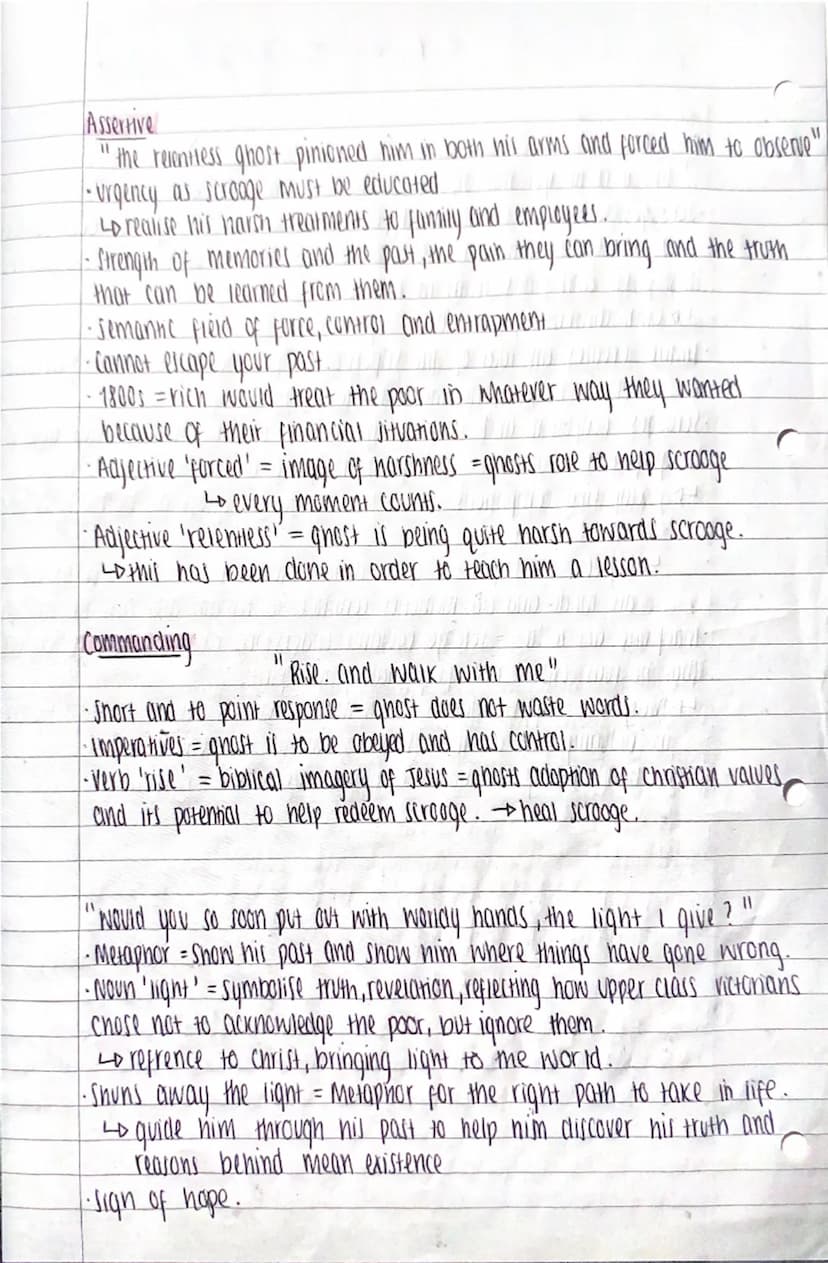 Assertive
"the relentless ghost pinioned him in both his arms and forced him to observe"
· urgency as scrooge must be educated
↳ realise his harsh treatments to family and employees.
· Strength of memories and the past, the pain they can bring and the truth
that can be learned from them.
· semantic field of force, control and entrapment
· cannot escape your past
· 1800s = rich would treat the poor in whatever way they wanted
because of their financial situations.
· Adjective 'forced' = image of harshness = ghosts role to help scrooge
↳ every moment counts.
· Adjective 'relentless' = ghost is being quite harsh towards scrooge.
↳ this has been done in order to teach him a lesson.
Commanding
"Rise. and walk with me"
· short and to point response = ghost does not waste words.
· imperatives = ghost is to be obeyed and has control.
· verb 'rise' = biblical imagery of Jesus = ghosts adoption of christian values
and its potential to help redeem scrooge. → heal scrooge.
"would you so soon put out with worldy hands, the light I give?"
· Metaphor = show his past and show him where things have gone wrong.
· Noun 'light' = symbolise truth, revelation, reflecting how upper class victorians
chose not to acknowledge the poor, but ignore them.
↳ refrence to Christ, bringing light to the world.
· shuns away the light = Metaphor for the right path to take in life.
↳ guide him through his past to help him discover his truth and
reasons behind mean existence
· sign of hope.